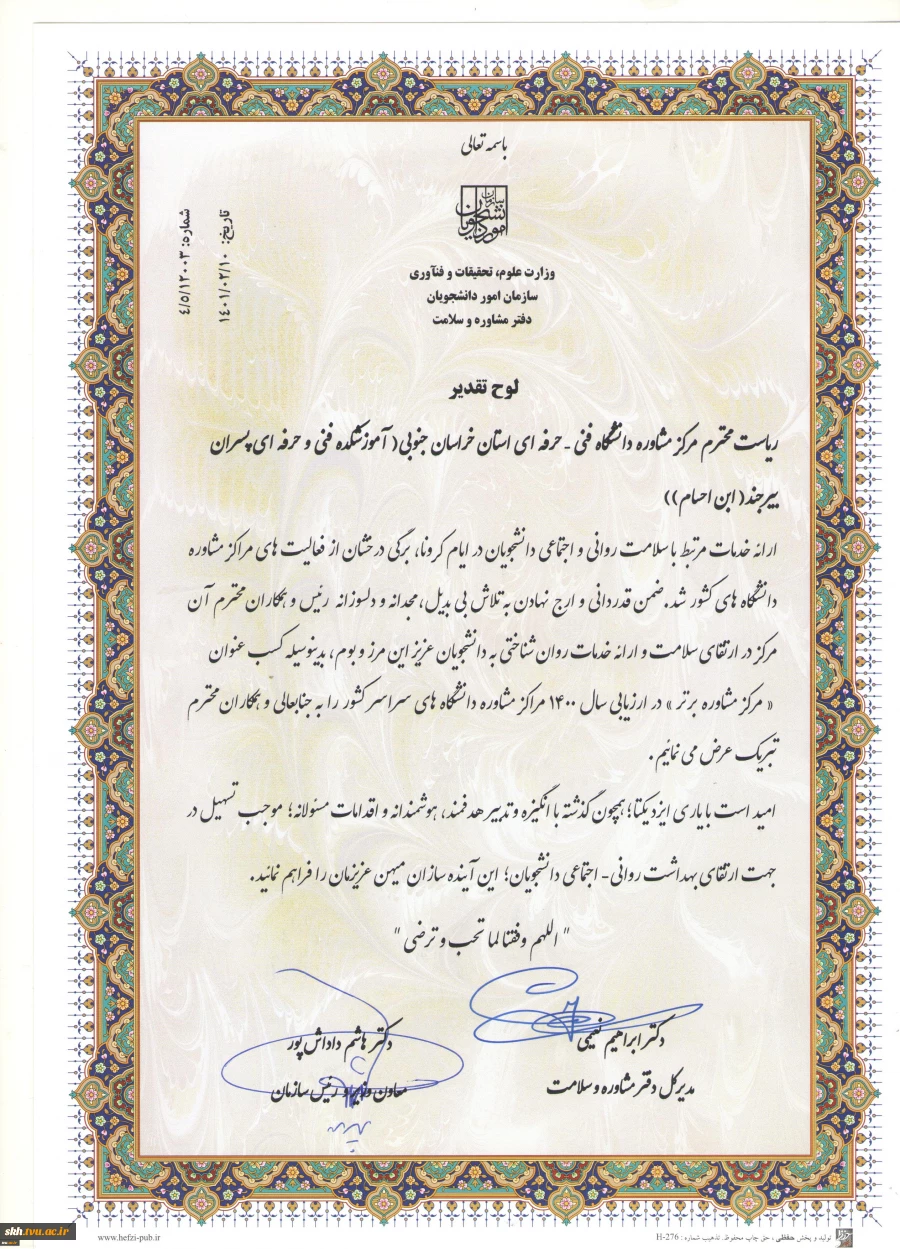 باسمه تعالی
سازمان امور دانشجویان
وزارت علوم، تحقیقات و فنآوری
سازمان امور دانشجویان
دفتر مشاوره و سلامت
تاریخ: ۱۴۰۱/۰۲/۱۰
شماره: ۴/۵/۱۲۰۰۳
لوح تقدیر
ریاست محترم مرکز مشاوره دانشگاه فنی - حرفه ای استان خراسان جنوبی( آموزشکده فنی و حرفه ای پسران
بیرجند( ابن احسام))
ارائه خدمات مرتبط با سلامت روانی و اجتماعی دانشجویان در ایام کرونا، برگی درخشان از فعالیت های مراکز مشاوره
دانشگاه های کشور شد. ضمن قدردانی و ارج نهادن به تلاش بی بدیل، مجدانه و دلسوزانه رئیس و همکاران محترم آن
مرکز در ارتقای سلامت و ارائه خدمات روان شناختی به دانشجویان عزیز این مرز و بوم، بدینوسیله کسب عنوان
« مرکز مشاوره برتر » در ارزیابی سال ۱۴۰۰ مراکز مشاوره دانشگاه های سراسر کشور را به جنابعالی و همکاران محترم
تبریک عرض می نمائیم.
امید است با یاری ایزد یکتا؛ همچون گذشته با انگیزه و تدبیر هدفمند، هوشمندانه و اقدامات مسئولانه؛ موجب تسهیل در
جهت ارتقای بهداشت روانی- اجتماعی دانشجویان؛ این آینده سازان میهن عزیزمان را فراهم نمائید.
" اللهم وفقنا لما تحب و ترضی "
دکتر ابراهیم نعیمی
مدیرکل دفتر مشاوره و سلامت
دکتر هاشم داداش پور
معاون وزیر و رئیس سازمان
skh.tvu.ac.ir
www.hefzi-pub.ir
تولید و پخش حفظی ، حق چاپ محفوظ. تذهیب شماره : H-276